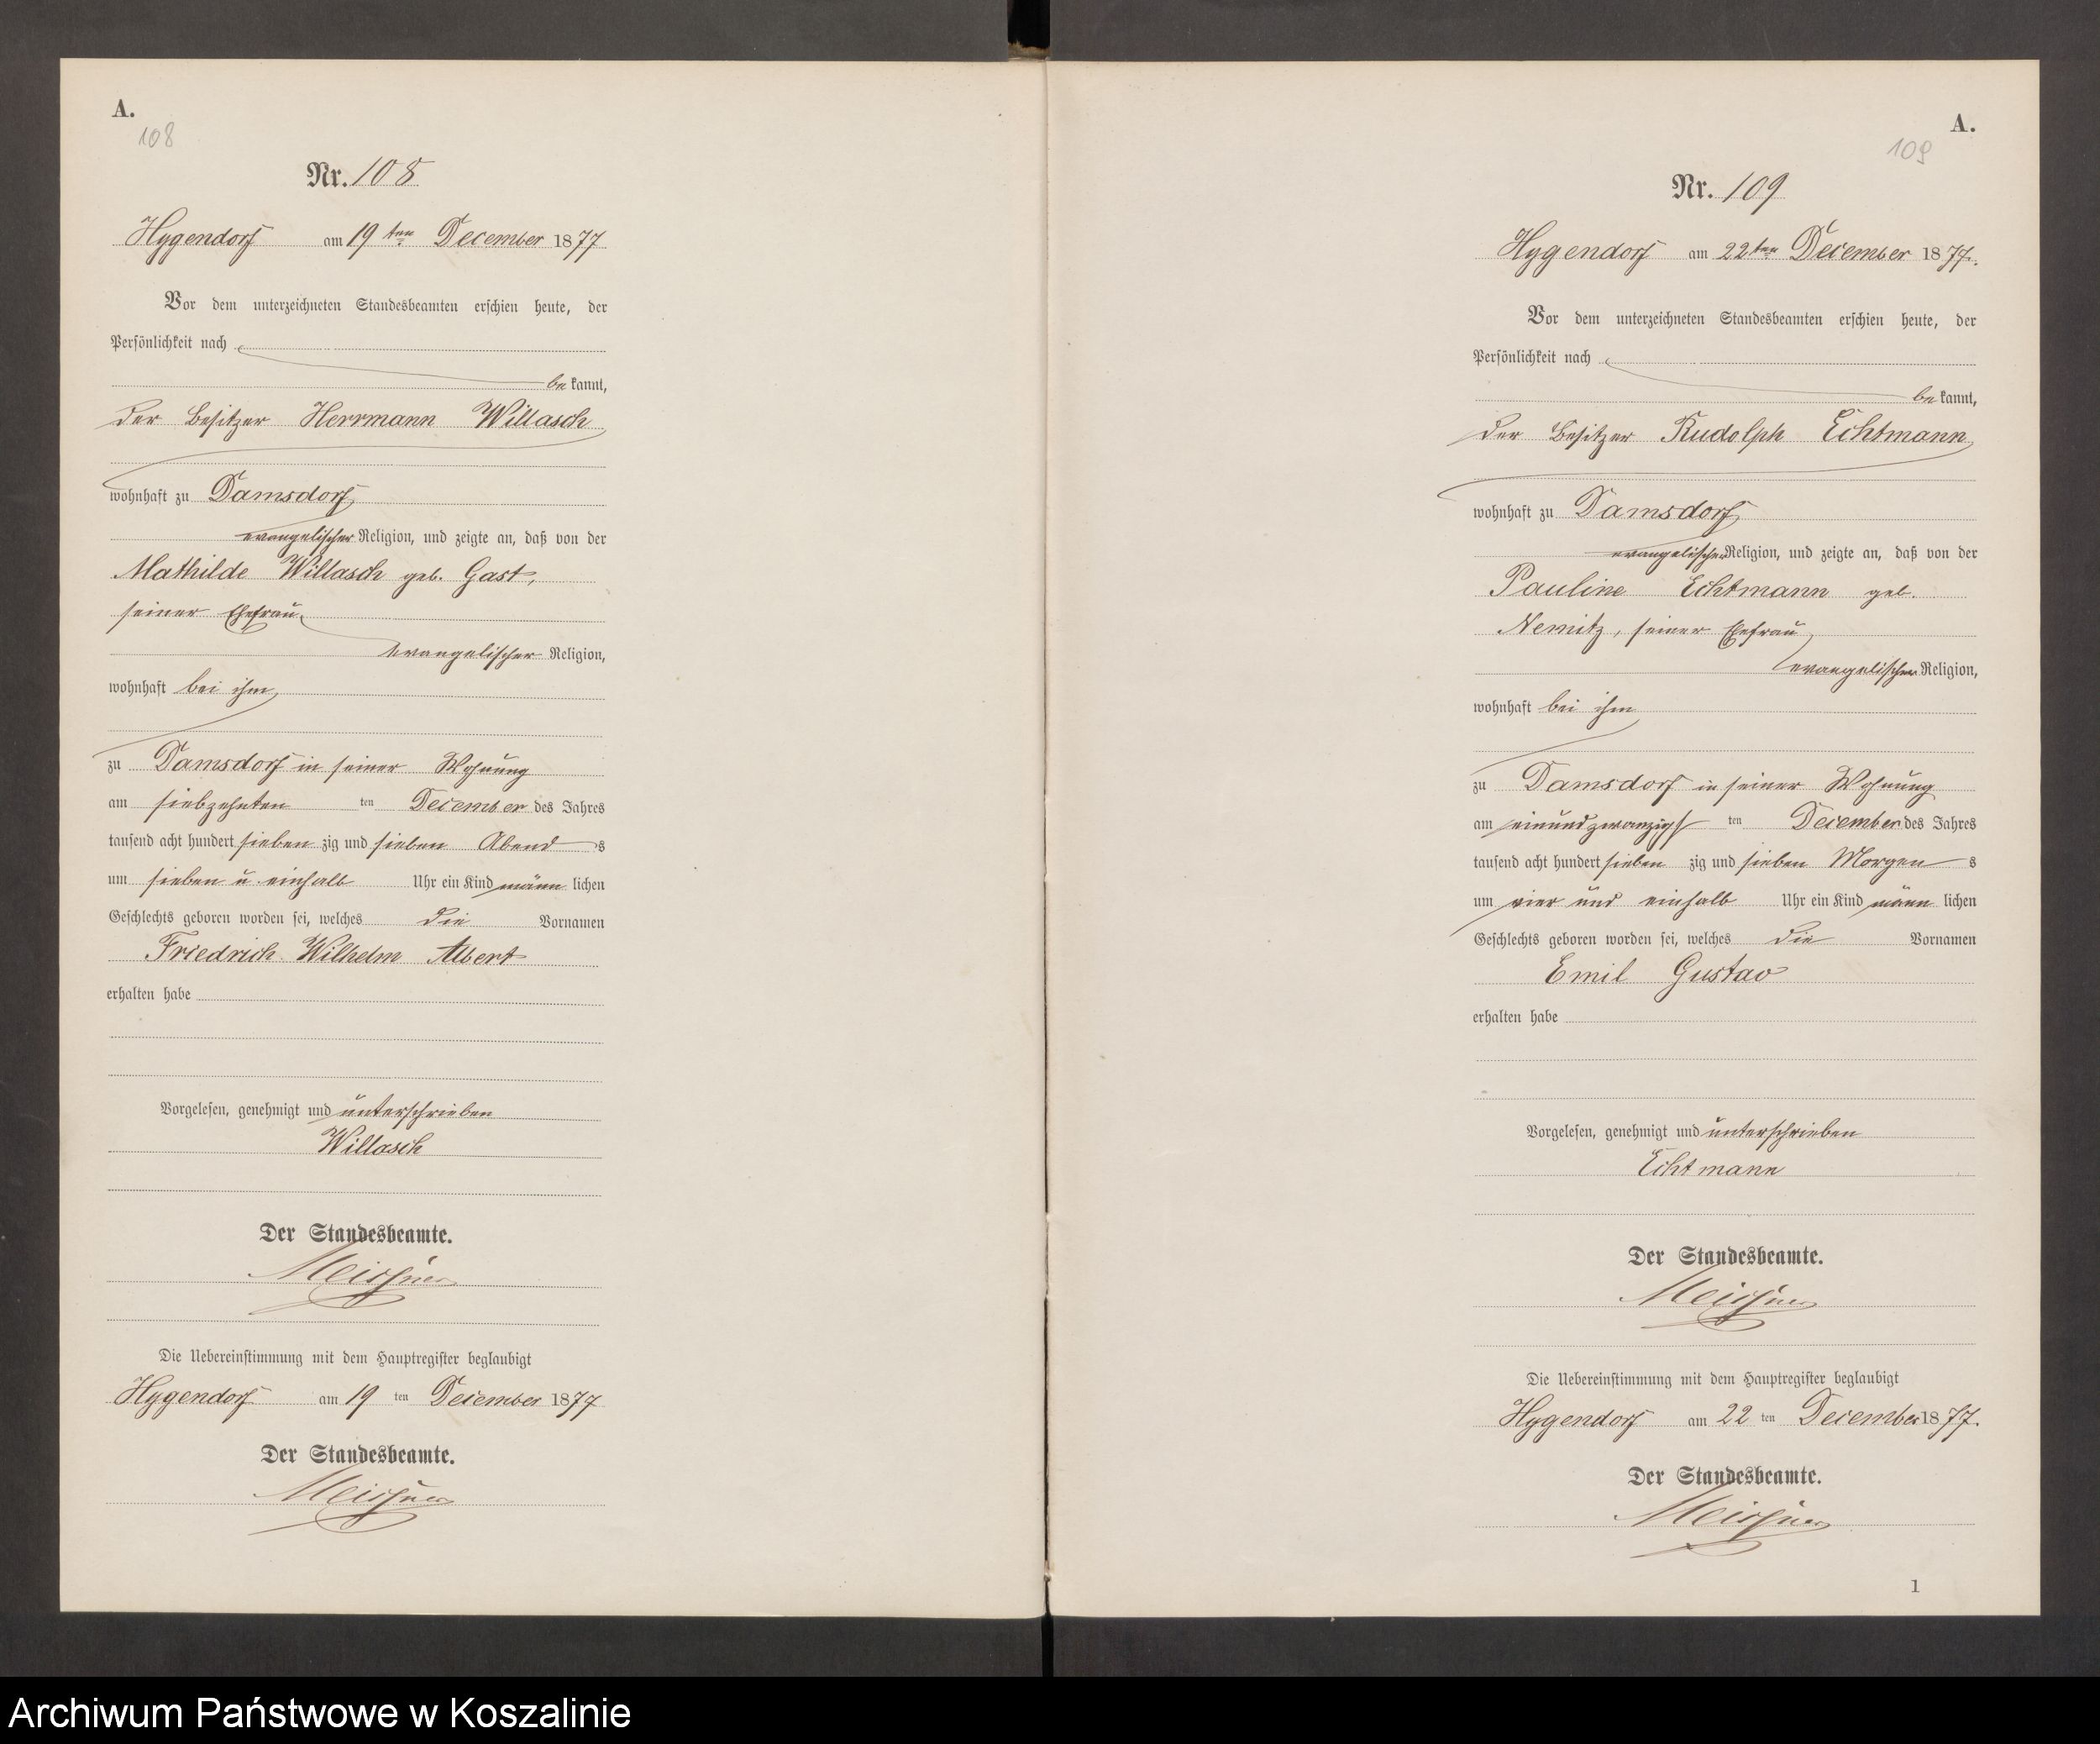 A.
108
Nr. 108
Hygendorf am 19ten December 1877
Vor dem unterzeichneten Standesbeamten erschien heute, der
Persönlichkeit nach
be kannt,
der Besitzer Herrmann Willasch
wohnhaft zu Damsdorf
evangelischer Religion, und zeigte an, daß von der
Mathilde Willasch geb. Gast,
seiner Ehefrau
evangelischer Religion,
wohnhaft bei ihm
zu Damsdorf in seiner Wohnung
am siebzehnten ten December des Jahres
tausend acht hundert sieben zig und sieben Abend s
um sieben u. einhalb Uhr ein Kind männ lichen
Geschlechts geboren worden sei, welches die Vornamen
Friedrich Wilhelm Albert
erhalten habe
Vorgelesen, genehmigt und unterschrieben
Willasch
Der Standesbeamte.
Meissner
Die Uebereinstimmung mit dem Hauptregister beglaubigt
Hygendorf am 19 ten December 1877
Der Standesbeamte.
Meissner
A.
109
Nr. 109
Hygendorf am 22ten December 1877.
Vor dem unterzeichneten Standesbeamten erschien heute, der
Persönlichkeit nach
be kannt,
der Besitzer Rudolph Echtmann
wohnhaft zu Damsdorf
evangelischer Religion, und zeigte an, daß von der
Pauline Echtmann geb.
Nemitz, seiner Ehefrau
evangelischer Religion,
wohnhaft bei ihm
zu Damsdorf in seiner Wohnung
am einundzwanzigst ten December des Jahres
tausend acht hundert sieben zig und sieben Morgen s
um vier und einhalb Uhr ein Kind männ lichen
Geschlechts geboren worden sei, welches die Vornamen
Emil Gustav
erhalten habe
Vorgelesen, genehmigt und unterschrieben
Echtmann
Der Standesbeamte.
Meissner
Die Uebereinstimmung mit dem Hauptregister beglaubigt
Hygendorf am 22 ten December 1877.
Der Standesbeamte.
Meissner
1
Archiwum Państwowe w Koszalinie